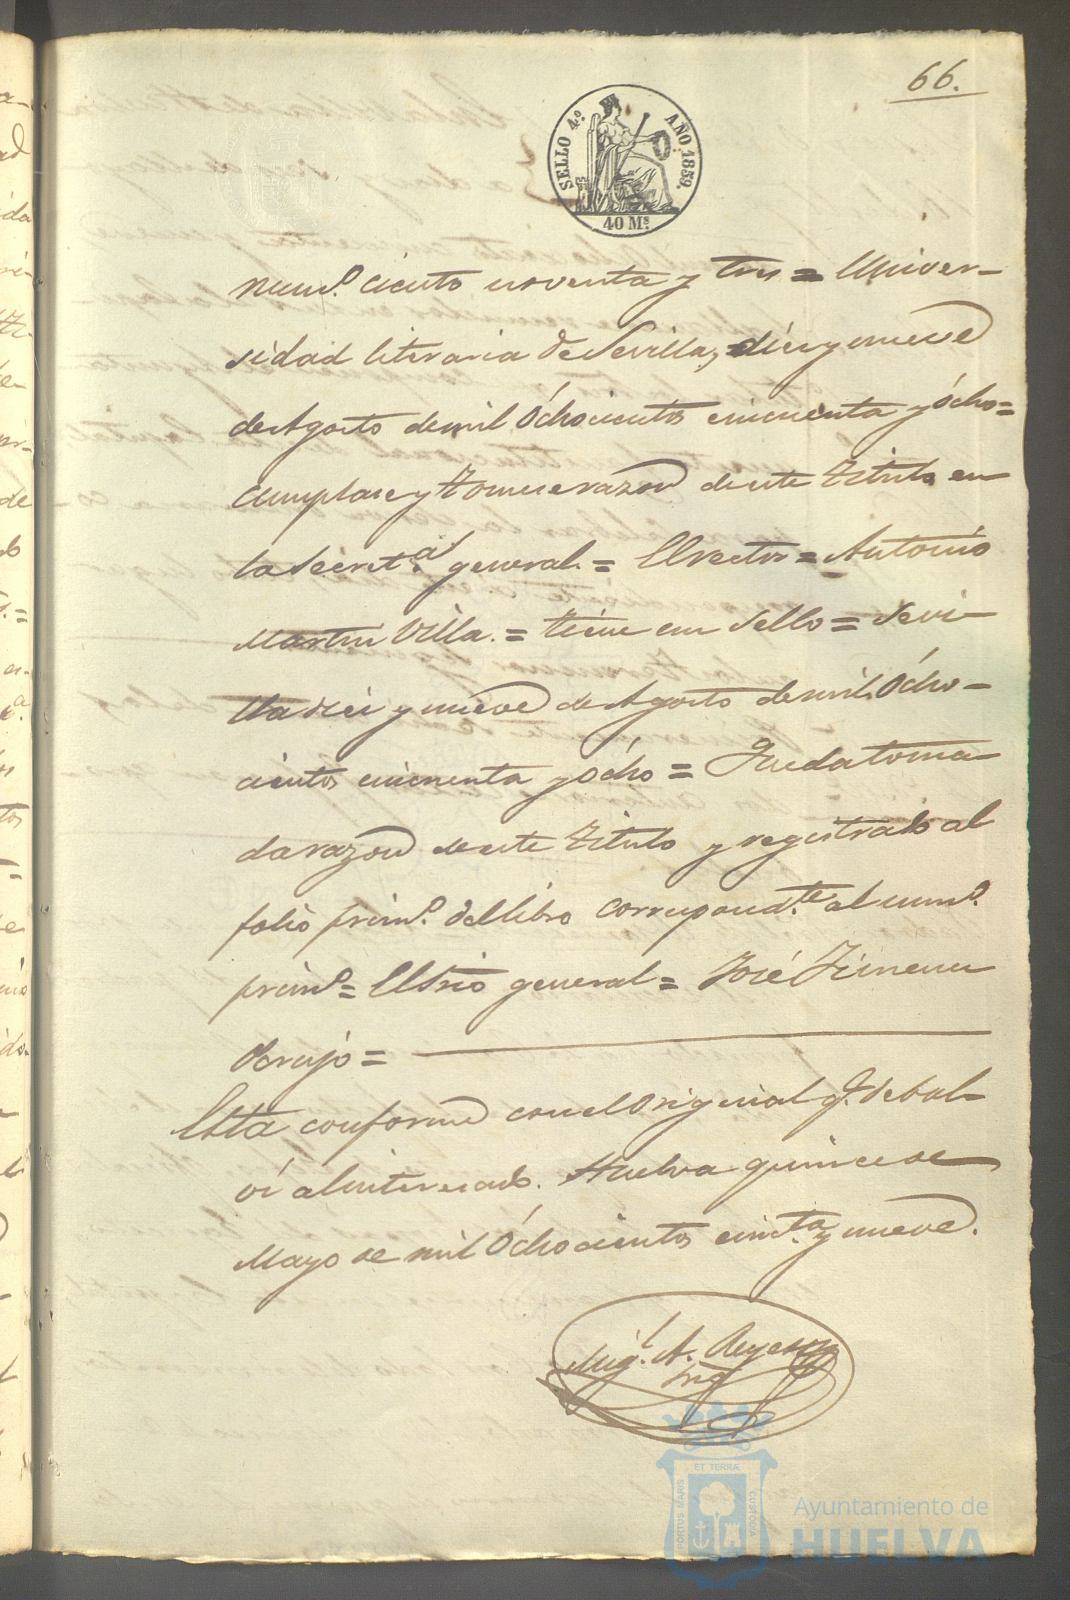 66.
SELLO 4.º AÑO 1859.
40 Ms
num.º ciento noventa y tres = Univer-
sidad literaria de Sevilla, diez y nueve
de Agosto de mil Ochocientos cincuenta y ócho =
cumplase y tomese razon de este titulo en
la Secret.a general. = El rector = Antonio
Martin Villa. = tiene un sello = Sevi-
lla diez y nueve de Agosto de mil Ócho-
cientos cincuenta y ócho = Queda toma-
da razon de este titulo y registrado al
folio prim.º del libro correspond.te al num.º
prim.º = El Srio general = José Jimenez
Orujo =
Está conforme con el Original q. debol-
ví al interesado. Huelva quince de
Mayo de mil Óchocientos cinc.ta y nueve.
Mig.l A.
ET TERRÆ
PORTUS MARIS
CUSTODIA
Ayuntamiento de
HUELVA